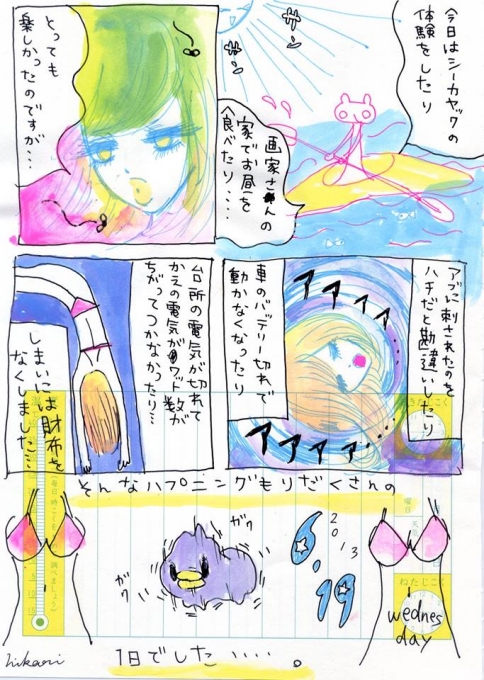 今日はシーカヤックの
体験をしたり
サンサン
画家さんの
家でお昼を
食べたり・・・・
とっても
楽しかったのですが・・・
アブに刺されたのを
ハチだと勘違いしたり
アアァィ
アアアァ
車のバッテリー切れで
動かなくなったり
台所の電気が切れて
かえの電気がワット数が
ちがってつかなかったり・・
しまいには財布を
なくしました・・
そんなハプニングもりだくさんの
ガク
ガク
2013
6.19
wednes
day
ねたじこく
1日でした・・・・。
hikari